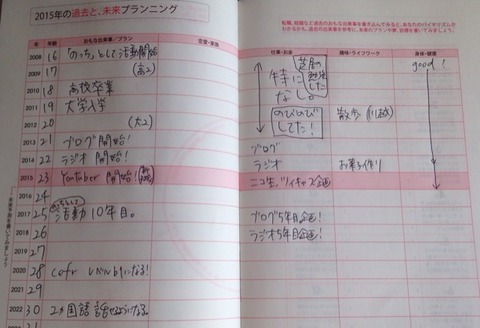 2015年の過去と、未来プランニング
転職、結婚など過去のおもな出来事を書き込んでみると、あなたのバイオリズムが
わかるかも。過去の出来事を参考に、未来のプランや夢、目標を書いてみましょう!
年 年齢 おもな出来事/プラン 恋愛・家族 仕事・お金 趣味・ライフワーク 身体・健康
2008 16 「のっち」として活動開始 good!
2009 17 (高2) 特に
2010 18 高校卒業 なし。
2011 19 大学入学 のびのび
2012 20 (大2) してた! 散歩
2013 21 ブログ開始! ブログ
2014 22 ラジオ開始! ラジオ お菓子作り
2015 23 Youtuber 開始! ニコ生、ツイキャス企画
2016 24
2017 25 活動10年目。 ブログ5年目企画!
2018 26 ラジオ5年目企画!
2019 27
2020 28 になる!
2021 29
2022 30 2カ国語 話せるようになる。
未来予測を書いてみましょう